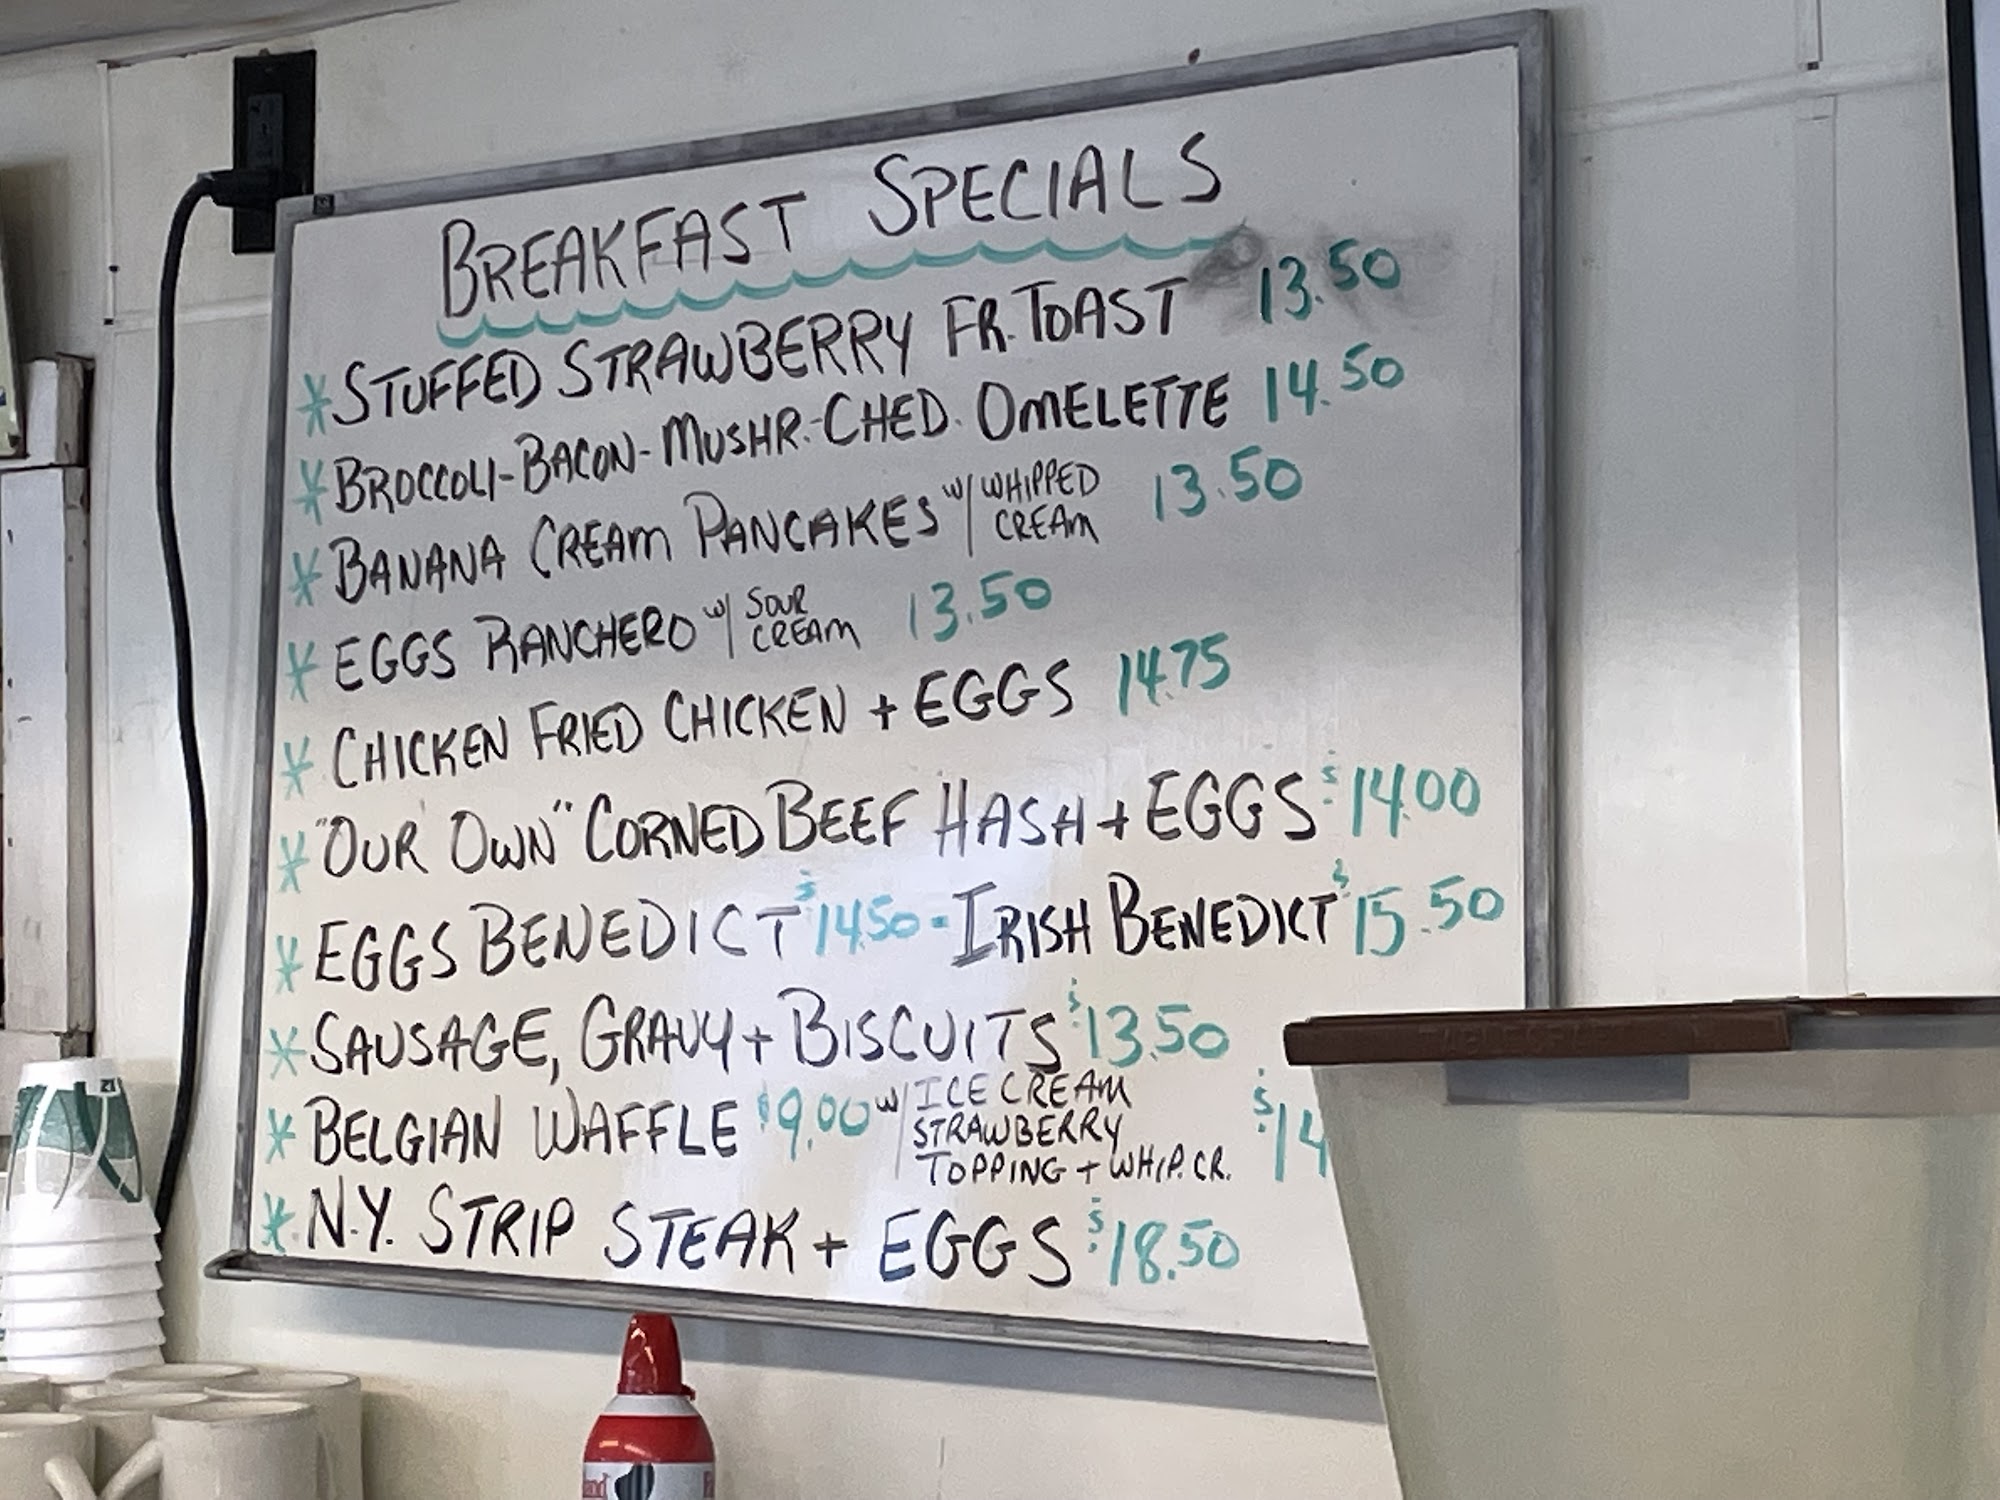 BREAKFAST SPECIALS
* STUFFED STRAWBERRY FR. TOAST 13.50
* BROCCOLI-BACON-MUSHR.-CHED. OMELETTE 14.50
* BANANA CREAM PANCAKES w/ WHIPPED CREAM 13.50
* EGGS RANCHERO w/ SOUR CREAM 13.50
* CHICKEN FRIED CHICKEN + EGGS 14.75
* "OUR OWN" CORNED BEEF HASH + EGGS $14.00
* EGGS BENEDICT $14.50 - IRISH BENEDICT $15.50
* SAUSAGE, GRAVY + BISCUITS $13.50
* BELGIAN WAFFLE $9.00 w/ ICE CREAM
STRAWBERRY
TOPPING + WHIP. CR. $14
* N.Y. STRIP STEAK + EGGS $18.50
21